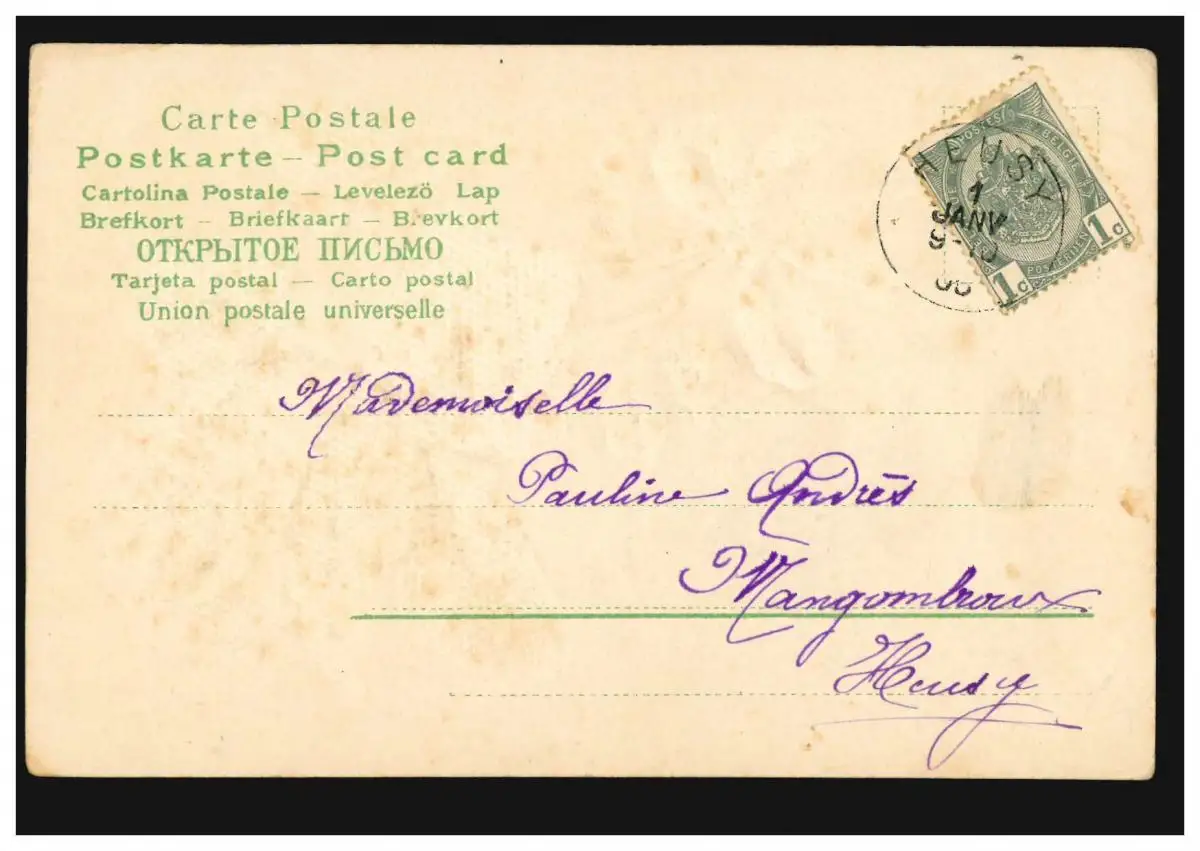 Carte Postale
Postkarte — Post card
Cartolina Postale — Levelezö Lap
Brefkort — Briefkaart — B.evkort
ОТКРЫТОЕ ПИСЬМО
Tarjeta postal — Carto postal
Union postale universelle
HEUSY
1
JANV
9-10
BELGIË
1c
1c
Mademoiselle
Pauline Andrés
Mangombroux
Heusy